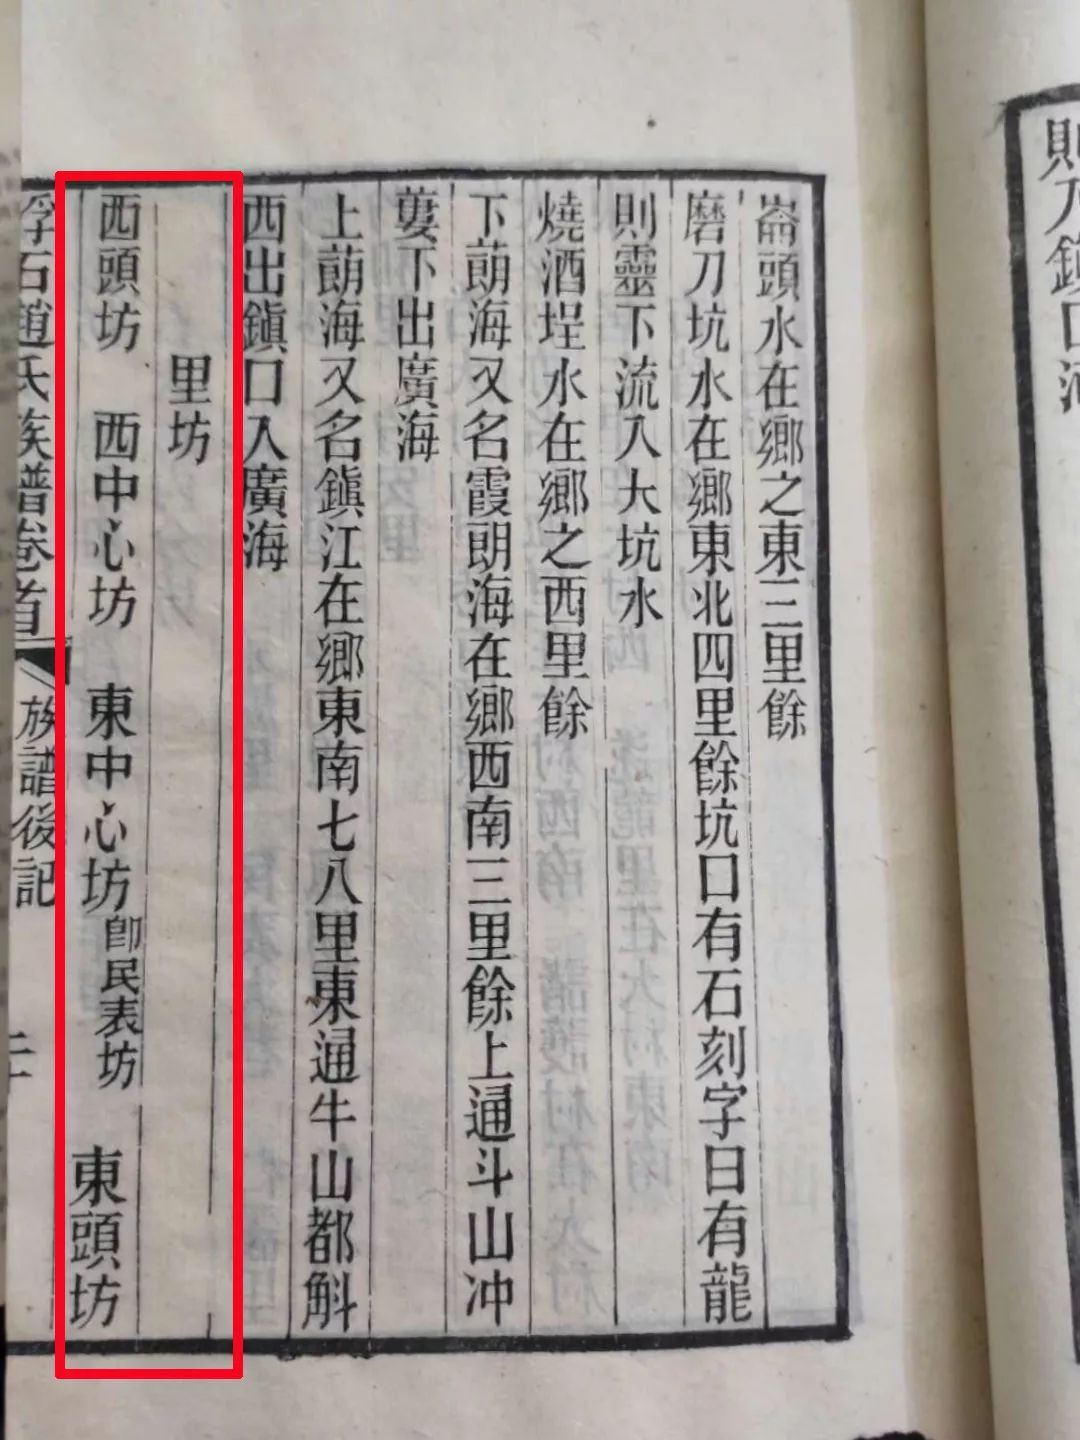 崙頭水在鄉之東三里餘
磨刀坑水在鄉東北四里餘坑口有石刻字曰有龍
則靈下流入大坑水
燒酒埕水在鄉之西里餘
下蓢海又名霞朗海在鄉西南三里餘上通斗山冲
蔞下出廣海
上蓢海又名鎭江在鄉東南七八里東通牛山都斛
西出鎭口入廣海
里坊
西頭坊 西中心坊 東中心坊 卽民表坊 東頭坊
浮石趙氏族譜卷首 族譜後記 二